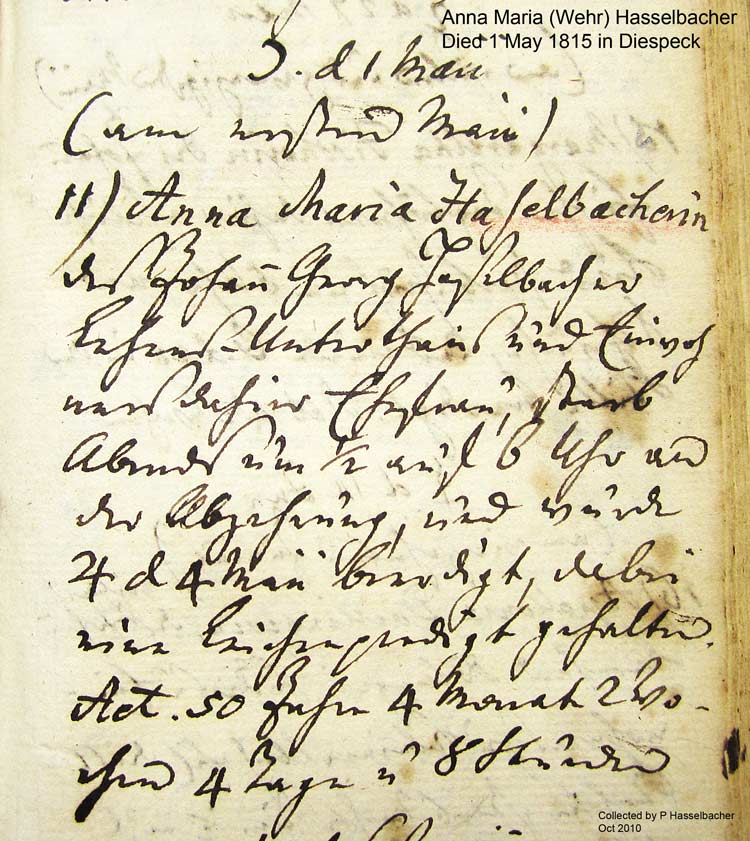 Anna Maria (Wehr) Hasselbacher
Died 1 May 1815 in Diespeck
d 1 Maii
(am ersten Maii)
11) Anna Maria Haßelbacherin
des Johann Georg Haßelbacher
Lehens-Unterthans und Einwoh
ners dahier Ehefrau, starb
Abends um 1/2 auf 6 Uhr an
der Abzehrung, und wurde
♃ d 4 Maii beerdigt, dabei
eine Leichenpredigt gehalten.
Aet. 50 Jahre 4 Monate 2 Wo-
chen 4 Tage u 8 Stunden
Collected by P Hasselbacher
Oct 2010